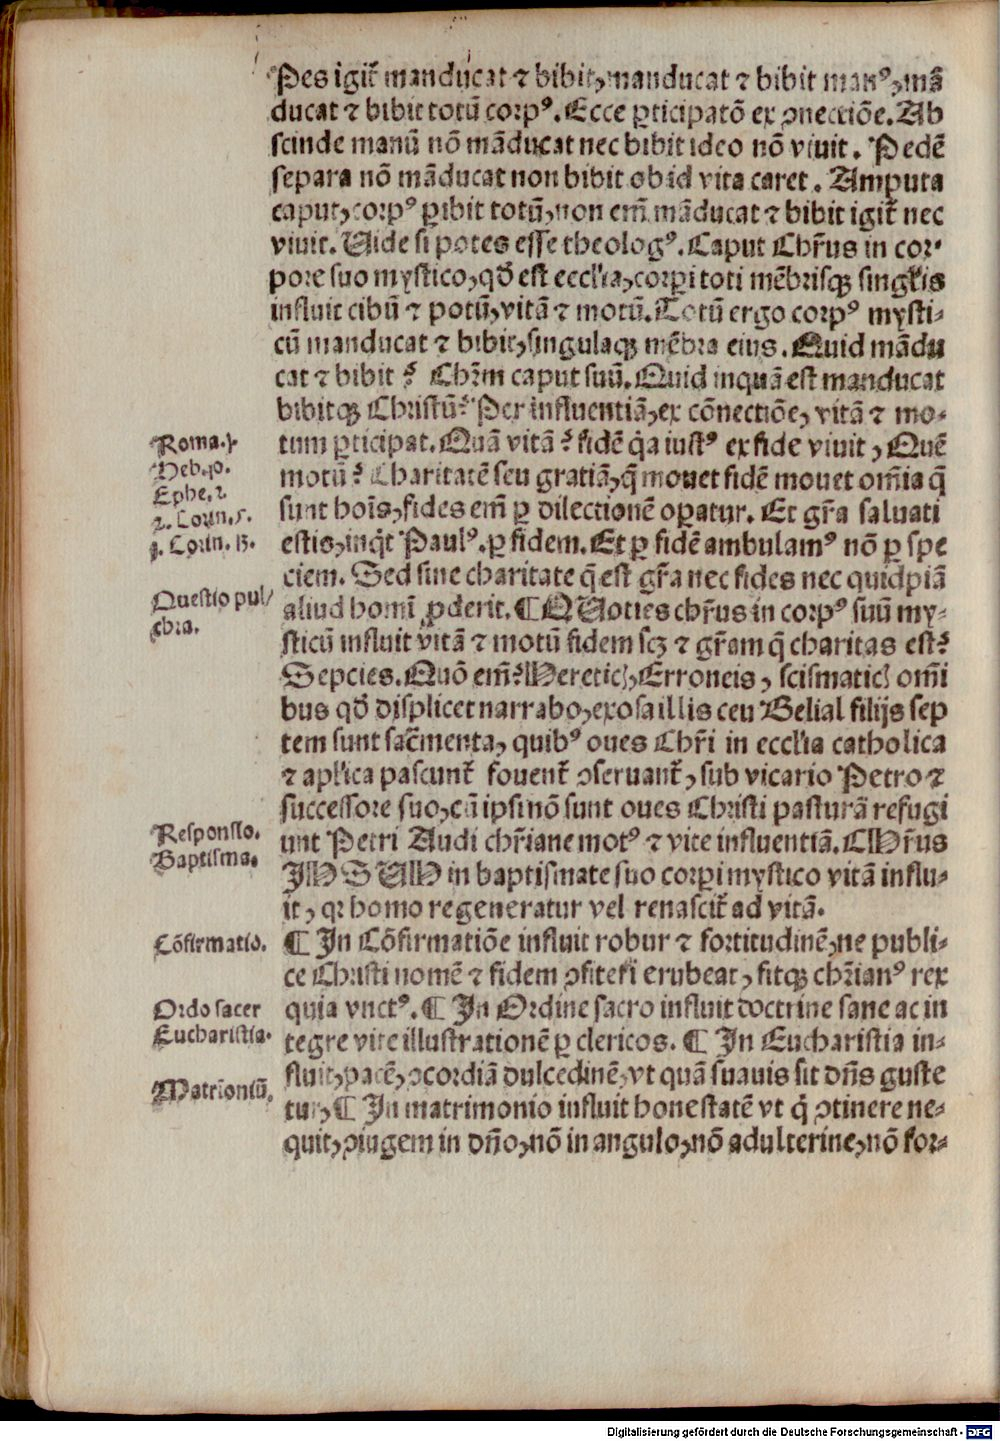 Pes igit᷑ manducat ⁊ bibit, manducat ⁊ bibit manꝰ, mā
ducat ⁊ bibit totū corpꝰ. Ecce ꝑticipatō ex ↄnectiōe. Ab
scinde manū nō māducat nec bibit ideo nō viuit. Pedē
separa nō māducat non bibit ob id vita caret. Amputa
caput, corpꝰ ꝑibit totū, non em̄ māducat ⁊ bibit igit᷑ nec
viuit. Uide si potes esse theologꝰ. Caput Chr̄us in cor-
pore suo mystico, qđ est eccl'ia, corpi toti mēbrisqꝫ singl'is
influit cibū ⁊ potū, vitā ⁊ motū. Totū ergo corpꝰ mysti-
cū manducat ⁊ bibit, singulaqꝫ mēbra eius. Quid mādu
cat ⁊ bibit? Chr̄m caput suū. Quid inquā est manducat
bibitqꝫ Christū? Per influentiā, ex cōnectiōe, vitā ⁊ mo-
Roma.j.
tum ꝑticipat. Quā vitā? fidē q̇a iustꝰ ex fide viuit, Quē
Heb.10.
motū? Charitatē seu gratiā, q̄ mouet fidē mouet om̄ia q̄
Ephe.2
sunt hoīs, fides em̄ ꝑ dilectionē oꝑatur. Et gr̄a saluati
2. Corin.5.
estis, inq̇t Paulꝰ. ꝑ fidem. Et ꝑ fidē ambulamꝰ nō ꝑ spe
1. Corin.13.
ciem. Sed sine charitate q̄ est gr̄a nec fides nec quidpiā
Questio pul
chra.
aliud homī ꝓderit. ¶ QUoties chr̄us in corpꝰ suū my-
sticū influit vitā ⁊ motū fidem scꝫ ⁊ gr̄am q̄ charitas est?
Sepcies. Quō em̄? Hereticꝭ, Erroneis, scismaticꝭ om̄i
bus qđ displicet narrabo, exosa illis ceu Belial filijs sep
tem sunt sac̄menta, quibꝰ oues Chr̄i in eccl'ia catholica
⁊ apl'ica pascunt᷑ fouent᷑ ↄseruant᷑, sub vicario Petro ⁊
successore suo, cū ipsi nō sunt oues Christi pasturā refugi
Responsio.
unt Petri Audi chr̄iane motꝰ ⁊ vite influentiā. CHr̄us
Baptisma.
IHSUH in baptismate suo corpi mystico vitā influ-
it, qꝛ homo regeneratur vel renascit᷑ ad vitā.
Cōfirmatio.
¶ In Cōfirmatiōe influit robur ⁊ fortitudinē, ne publi-
ce Christi nomē ⁊ fidem ↄfiteri erubeat, fitqꝫ chr̄ianꝰ rex
Ordo sacer
quia vnctꝰ. ¶ In Ordine sacro influit doctrine sane ac in
Eucharistia.
tegre vite illustrationē ꝑ clericos. ¶ In Eucharistia in-
fluit, pacē, ↄcordiā dulcedinē, vt quā suauis sit dn̄s guste
Matrimoniū.
tur, ¶ In matrimonio influit honestatē vt q̇ ↄtinere ne-
quit, ↄiugem in dn̄o, nō in angulo, nō adulterine, nō for-
Digitalisierung gefördert durch die Deutsche Forschungsgemeinschaft - DFG